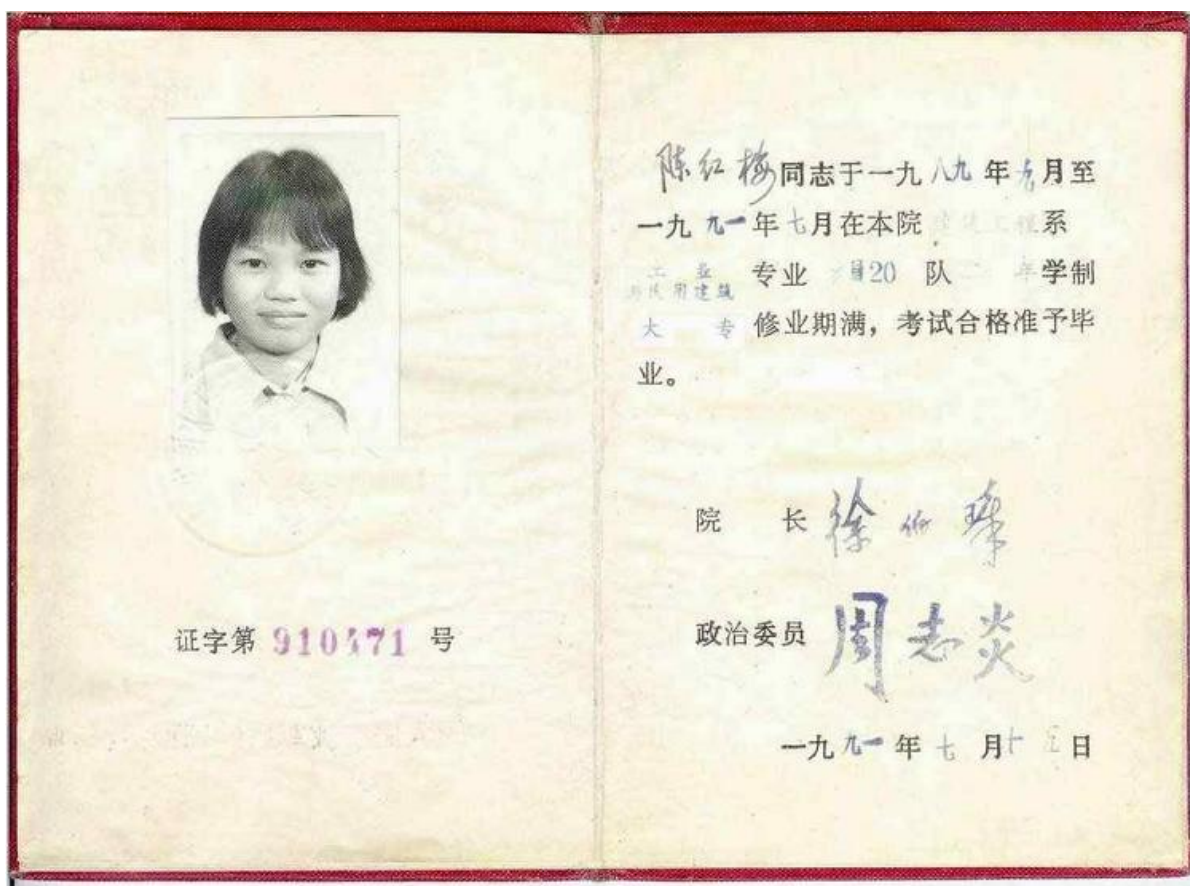 证字第 910471 号
陈红梅同志于一九八九年九月至
一九九一年七月在本院建筑工程系
工业
与民用建筑专业 学员20 队二年学制
大专修业期满，考试合格准予毕
业。
院长 徐
政治委员 周志炎
一九九一年七月十五日